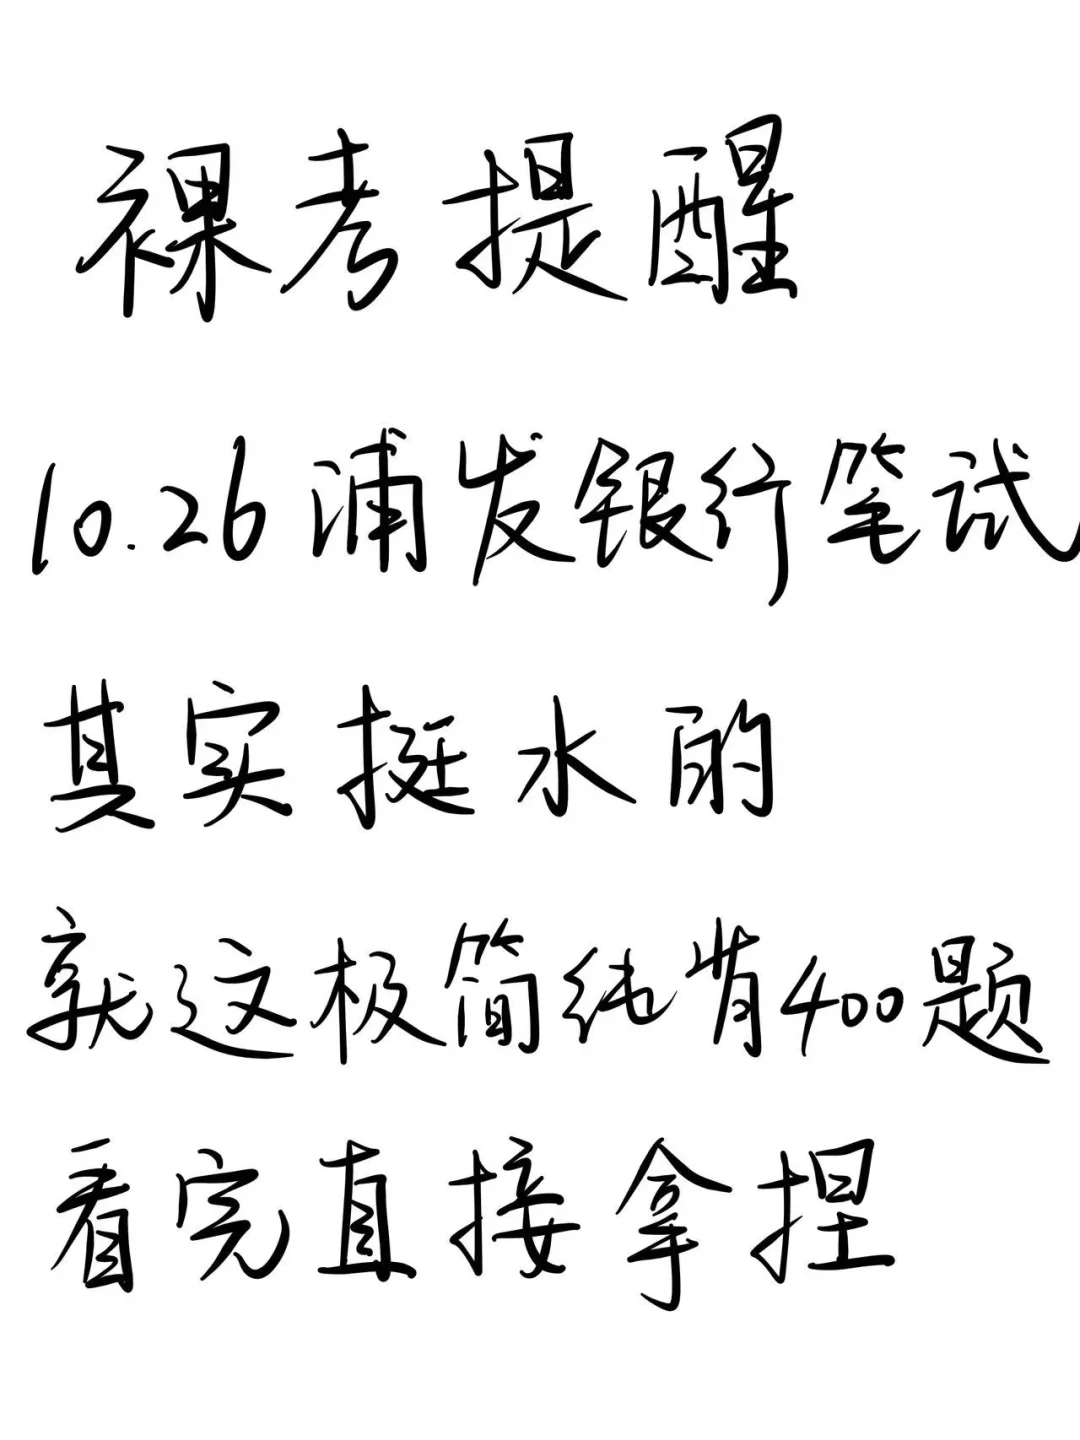 裸考提醒
10.26浦发银行笔试
其实挺水的
就这极简纯背400题
看完直接拿捏